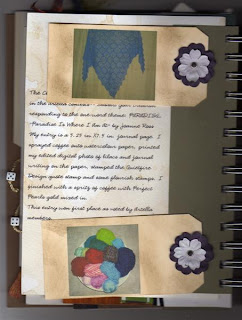 The
in the
responding to the one word theme: PARADISE.
"Paradise Is Where I Am At" by Joanne Ross
My entry is a 5.25 in X7.5 in. journal page. I
sprayed coffee onto watercolor paper, printed
my edited digital photo of lilacs and journal
writing on the paper, stamped the
Design quote stamp and some flourish stamps. I
finished with a spritz of coffee with Perfect
Pearls gold mixed in.
This entry won first place as voted by Artella
members.